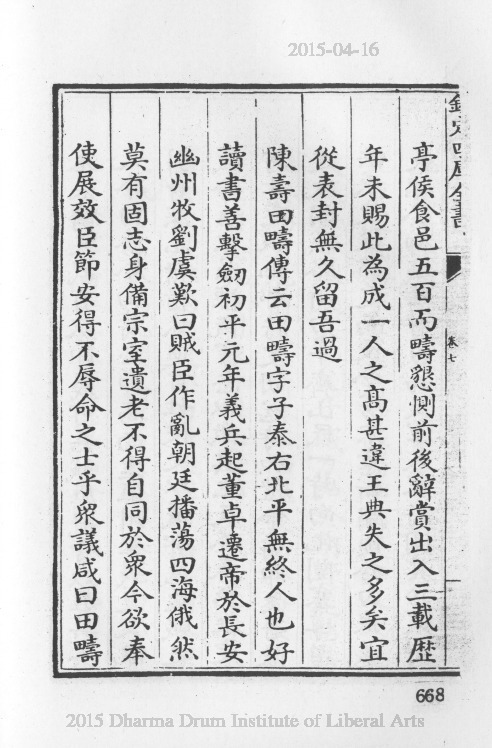 2015-04-16
欽定四庫全書
卷七
亭侯食邑五百而疇懇惻前後辭賞出入三載歴
年未賜此為成一人之髙甚違王典失之多矣宜
從表封無久留吾過
陳壽田疇傳云田疇字子泰右北平無終人也好
讀書善擊劒初平元年義兵起董卓遷帝於長安
幽州牧劉虞歎曰賊臣作亂朝廷播蕩四海俄然
莫有固志身備宗室遺老不得自同於衆今欲奉
使展效臣節安得不辱命之士乎衆議咸曰田疇
668
2015 Dharma Drum Institute of Liberal Arts